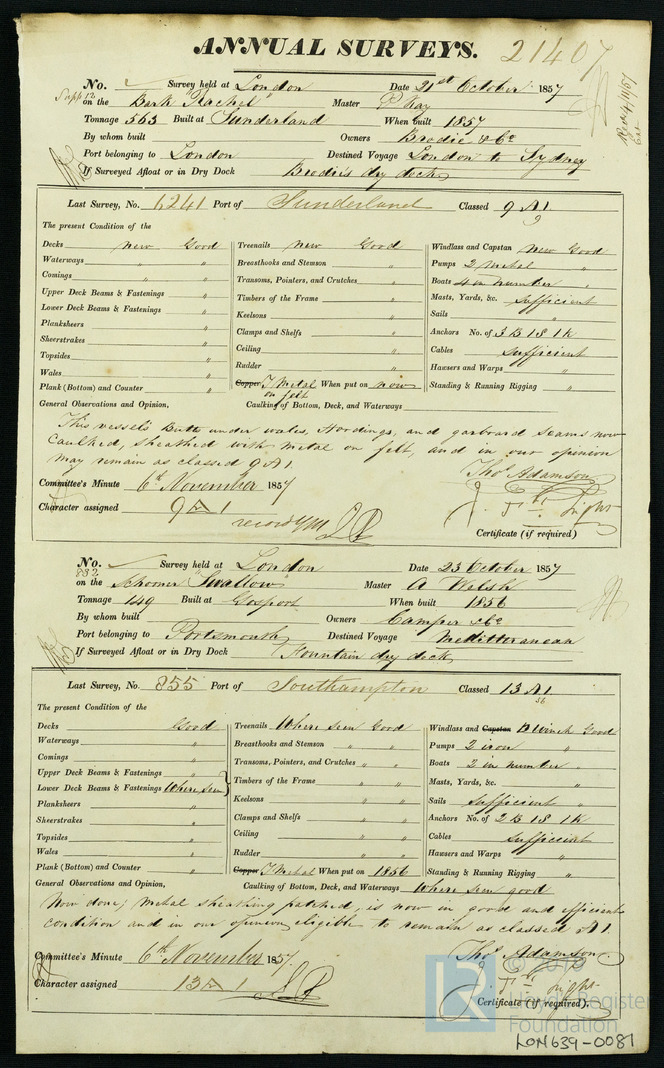 ANNUAL SURVEYS. 21407
No. Survey held at London Date 21st October 1857
Supp 12 on the Bark "Rachel" Master P Kay
Tonnage 563 Built at Sunderland When built 1857
By whom built Owners Brodie & Co
Port belonging to London Destined Voyage London to Sydney
If Surveyed Afloat or in Dry Dock Brodie's dry dock
Last Survey, No. 6241 Port of Sunderland Classed 9 A1.
The present Condition of the
Decks New Good Treenails New Good Windlass and Capstan New Good
Waterways " Breasthooks and Stemson " Pumps 2 metal "
Comings " " Transoms, Pointers, and Crutches " Boats 4 in number "
Upper Deck Beams & Fastenings " Timbers of the Frame " Masts, Yards, &c. Sufficient
Lower Deck Beams & Fastenings " Keelsons " Sails "
Planksheers " Clamps and Shelfs " Anchors No. of 3 B 1 S 1 K
Sheerstrakes " Ceiling " Cables Sufficient
Topsides " Rudder " Hawsers and Warps "
Wales " Copper Y Metal When put on now Standing & Running Rigging "
on felt
Plank (Bottom) and Counter " Caulking of Bottom, Deck, and Waterways
General Observations and Opinion,
This vessel's Butts under wales, Hoodings, and garboard seams now
Caulked, sheathed with metal on felt, and in our opinion
may remain as classed 9 A1.
Thos Adamson
Committee's Minute 6th November 1857
Character assigned 9 A 1
Certificate (if required)
No. Survey held at London Date 23 October 1857
832 on the Schooner "Swallow" Master A Welsh
Tonnage 149 Built at Gosport When built 1856
By whom built Owners Camper & Co
Port belonging to Portsmouth Destined Voyage Meditterranean
If Surveyed Afloat or in Dry Dock Fountain dry dock
Last Survey, No. 855 Port of Southampton Classed 13 A1.
56
The present Condition of the
Decks Good Treenails Where seen Good Windlass and Capstan & Winch Good
Waterways " Breasthooks and Stemson " " Pumps 2 iron "
Comings " Transoms, Pointers, and Crutches " " Boats 2 in number "
Upper Deck Beams & Fastenings " Timbers of the Frame " " Masts, Yards, &c. "
Lower Deck Beams & Fastenings Where seen Keelsons " " Sails Sufficient "
Planksheers " Clamps and Shelfs " " Anchors No. of 2 B 1 S 1 K
Sheerstrakes " Ceiling " " Cables Sufficient
Topsides " Rudder " " Hawsers and Warps "
Wales " Copper Y Metal When put on 1856 Standing & Running Rigging "
Plank (Bottom) and Counter " Caulking of Bottom, Deck, and Waterways Where seen good
General Observations and Opinion,
Now done; metal sheathing patched, is now in good and efficient
condition and in our opinion eligible to remain as classed A1.
Thos Adamson
Committee's Minute 6th November 1857
Character assigned 13 A 1
Certificate (if required).
LR © 2018
Lloyd's Register
Foundation
LON639-0081